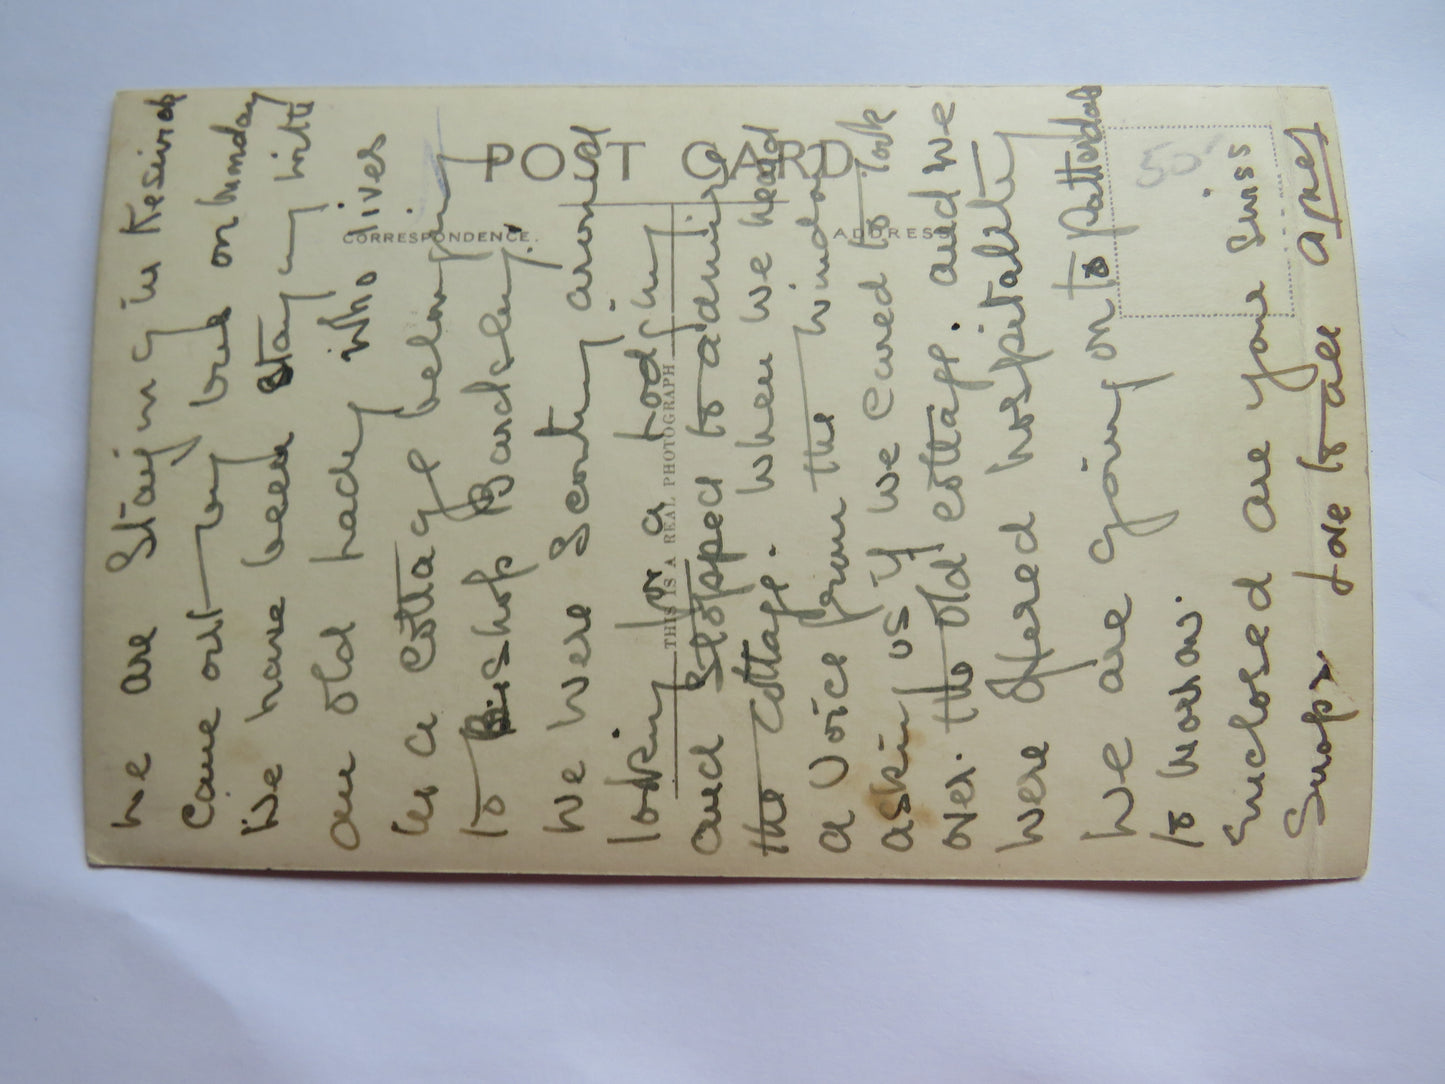 POST CARD
CORRESPONDENCE.
ADDRESS
THIS IS A REAL PHOTOGRAPH
50
We are Staying in Keswick
Came out by bus on Monday
We have been staying with
an old Lady who lives
in a Cottage belonging
to Bishop Barclay.
We were Scouting around
looking for a lodging
and stopped to admire
the Cottage. When we heard
a voice from the window
asking us if we cared to look
over the old cottage. and we
were offered hospitality
We are going on to Patterdale
to morrow.
Enclosed are your Swiss
Snaps Love to all